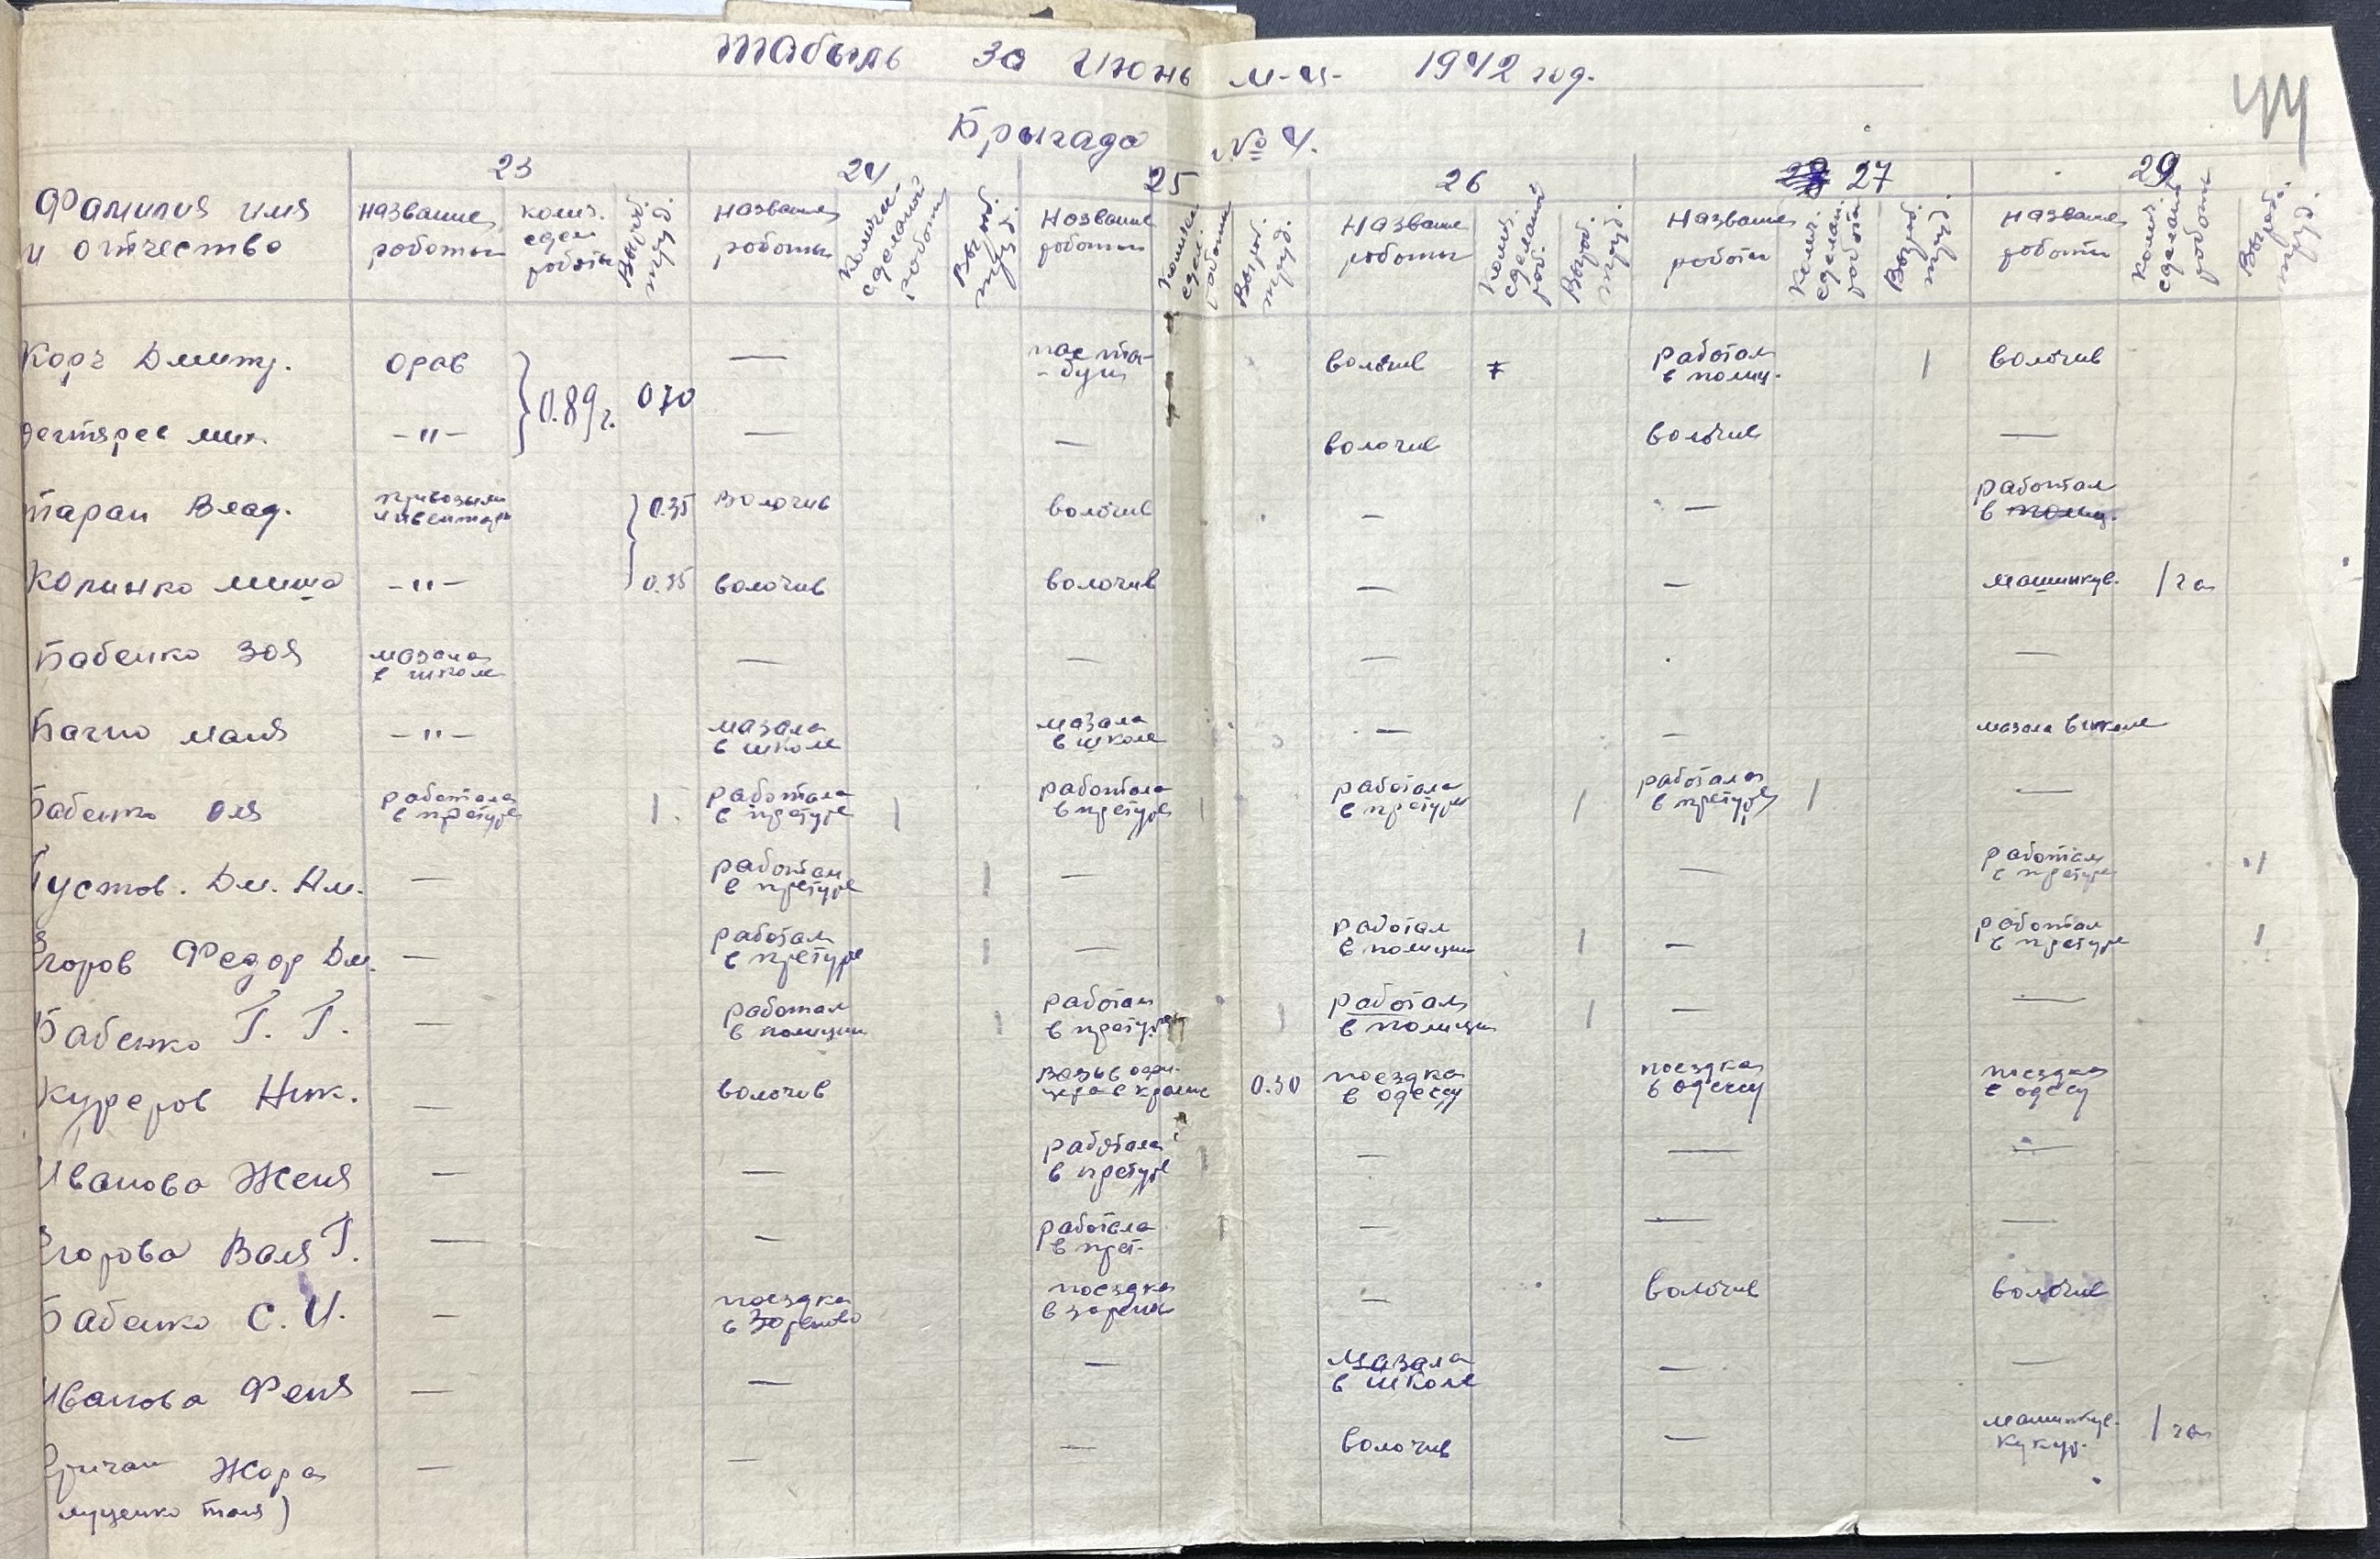 Табыль за Июнь м-ц- 1942 год.
44
Брыгада № 4.
23 24 25 26 27 29
Фамилия имя
и отчество
название
работы
колич.
сдел
работы
Выроб.
труд.
название
работы
Количес
сделаной
работы
Выроб.
труд.
Название
работы
Количес.
сдел.
работы
Выроб.
труд.
Название
работы
Колич.
сделаной
раб.
Выроб.
труд.
Название
работы
Колич.
сделан.
работы
Выроб.
труд.
название
работы
Колич.
сделаной
работы
Выраб.
труд.
Корч Дмитр. орав } 0.89 г. 070 — пас та-
-бун
волочив работал
в полиц. 1 волочив
Дегтярев мих. -"- — — волочив волочив —
Таран Влад. привозили
инвентарь } 0.35 Волочив волочив — — работал
в полиц.
Калинко миша -"- 0.35 волочив волочив — — машинкув. 1 га
Бабенко Зоя мазала
в школе — — — —
Бачко маня -"- мазала
в школе мазала
в школе — — мазала в школе
Бабенко Оля работала
в претуре 1. работала
в претуре 1 работала
в претуре 1 работала
в претуре 1 работала
в претуре 1 —
Густов. Дм. Ам. — работал
в претуре 1 — — работал
в претуре 1
Егоров Федор Дм. — работал
в претуре 1 — работал
в полиции 1 — работал
в претуре 1
Бабенко Г. Г. — работал
в полиции 1 работал
в претуре 1 работал
в полиции 1 — —
Куреров Ник. — волочив 0.30 поездка
в одессу поездка
в одессу поездка
в одесу
Иванова Женя — — работала
в претуре 1 — — —
Егорова Валя Г. — — работала
в прет. 1 — — —
Бабенко С. И. — поездка
в Зорешво поездка
в — волочив волочив
Иванова Феня — — — мазала
в школе — —
Жора — — — волочив — машинкув.
кукур. 1 га
луценко Толя)